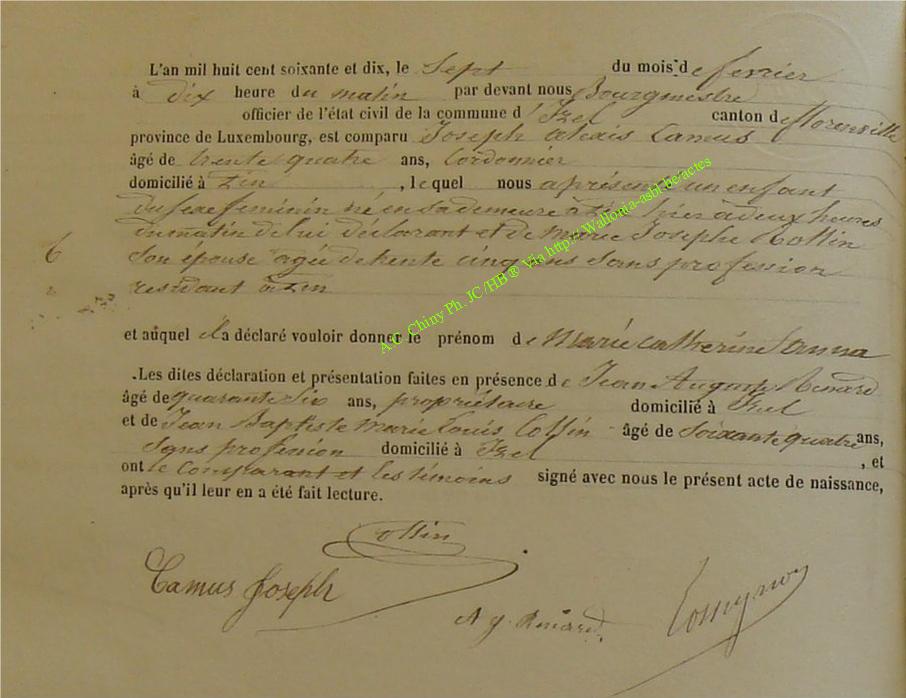 L'an mil huit cent soixante et dix, le Sept du mois de fevrier
à dix heure du matin par devant nous Bourgmestre
officier de l'état civil de la commune d'Izel canton de Florenville
province de Luxembourg, est comparu Joseph Alexis Camus
âgé de trente quatre ans, Cordonnier
domicilié à Zin, lequel nous a présenté un enfant
du sexe feminin né en sa demeure à Zin hier à deux heures
du matin de lui déclarant et de Marie Josephe Collin
6 son épouse agée de trente cinq ans sans profession
residant à Zin
et auquel il a déclaré vouloir donner le prénom de Marie Catherine Anna
.Les dites déclaration et présentation faites en présence de Jean Auguste Renard
âgé de quarante six ans, propriétaire domicilié à Izel
et de Jean Baptiste Marie Louis Collin âgé de soixante quatre ans,
sans profession domicilié à Izel, et
ont le Comparant et les témoins signé avec nous le présent acte de naissance,
après qu'il leur en a été fait lecture.
Collin
Camus Joseph
Renard
A.C. Chiny Ph. JC/HB ® Via http://Wallonia-asbl.be/actes